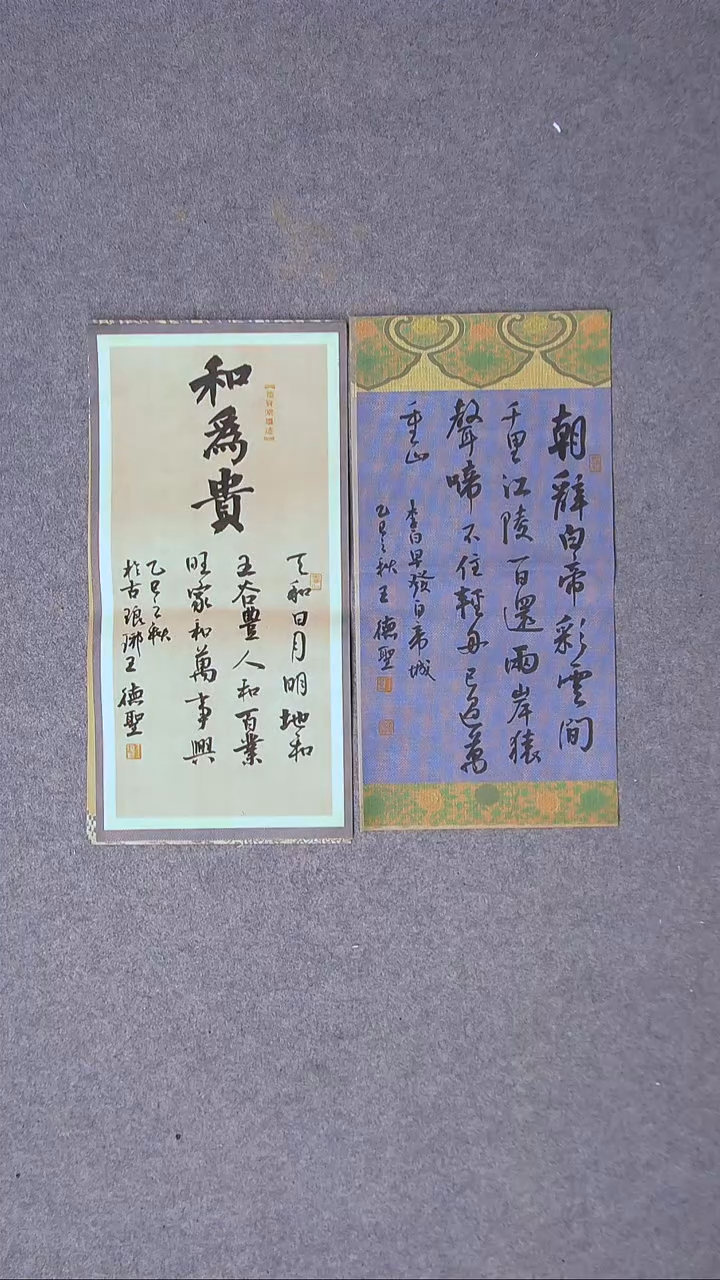 和為貴
天和日月明地和
五谷豐人和百業
旺家和萬事興
乙巳之秋
於古琅琊王德聖
朝辭白帝彩雲間
千里江陵百還兩岸猿
聲啼不住輕舟已過萬
重山
李白早發白帝城
乙巳之秋王德聖